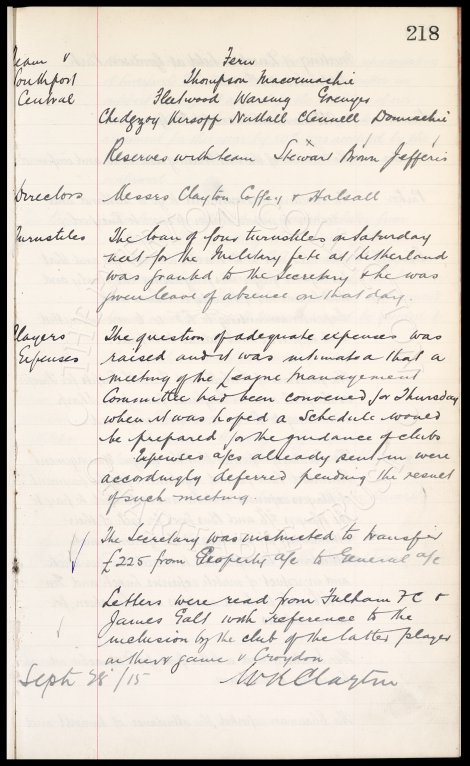 218
Team v Fern
Southport Thompson Maconnachie
Central Fleetwood Wareing Grenyer
Chedgzoy Kirsopp Nuttall Clennell Donnachie
Reserves with team Steward Brown Jefferis
Directors Messrs Clayton Coffey & Halsall
Turnstiles The loan of four turnstiles on Saturday
next for the Military fete at Litherland
was granted to the Secretary & he was
given leave of absence on that day.
Players The question of adequate expenses was
Expenses raised and it was intimated that a
meeting of the League Management
Committee had been convened for Thursday
when it was hoped a Schedule would
be prepared for the guidance of clubs
Expenses a/cs already sent in were
accordingly deferred pending the result
of such meeting
The Secretary was instructed to transfer
£225 from Property a/c to General a/c
Letters were read from Fulham FC &
James Galt with reference to the
inclusion by the club of the latter player
in their game v Croydon
Sept 28/15 W R Clayton